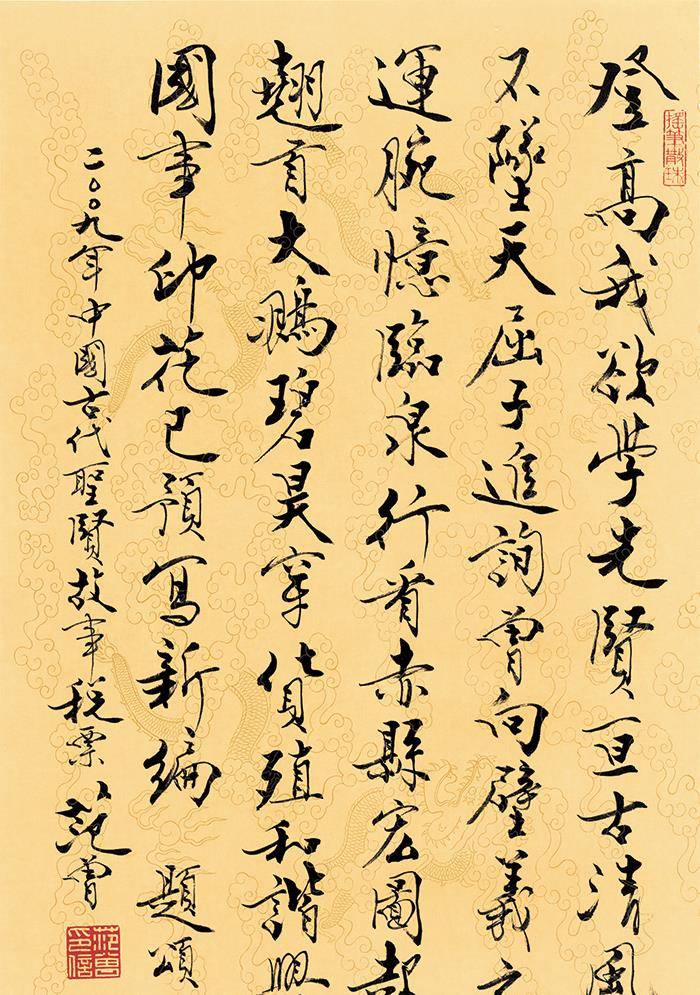 搖筆散珠
登高我欲學先賢亘古清風
不墜天屈子進詢曾向壁羲之
運腕憶臨泉行看赤縣宏圖起
翹首大鵬碧昊穿貨殖和諧興
國事印花已預寫新編 題頌
二〇〇九年中國古代聖賢故事稅票 范曾
范曾印信